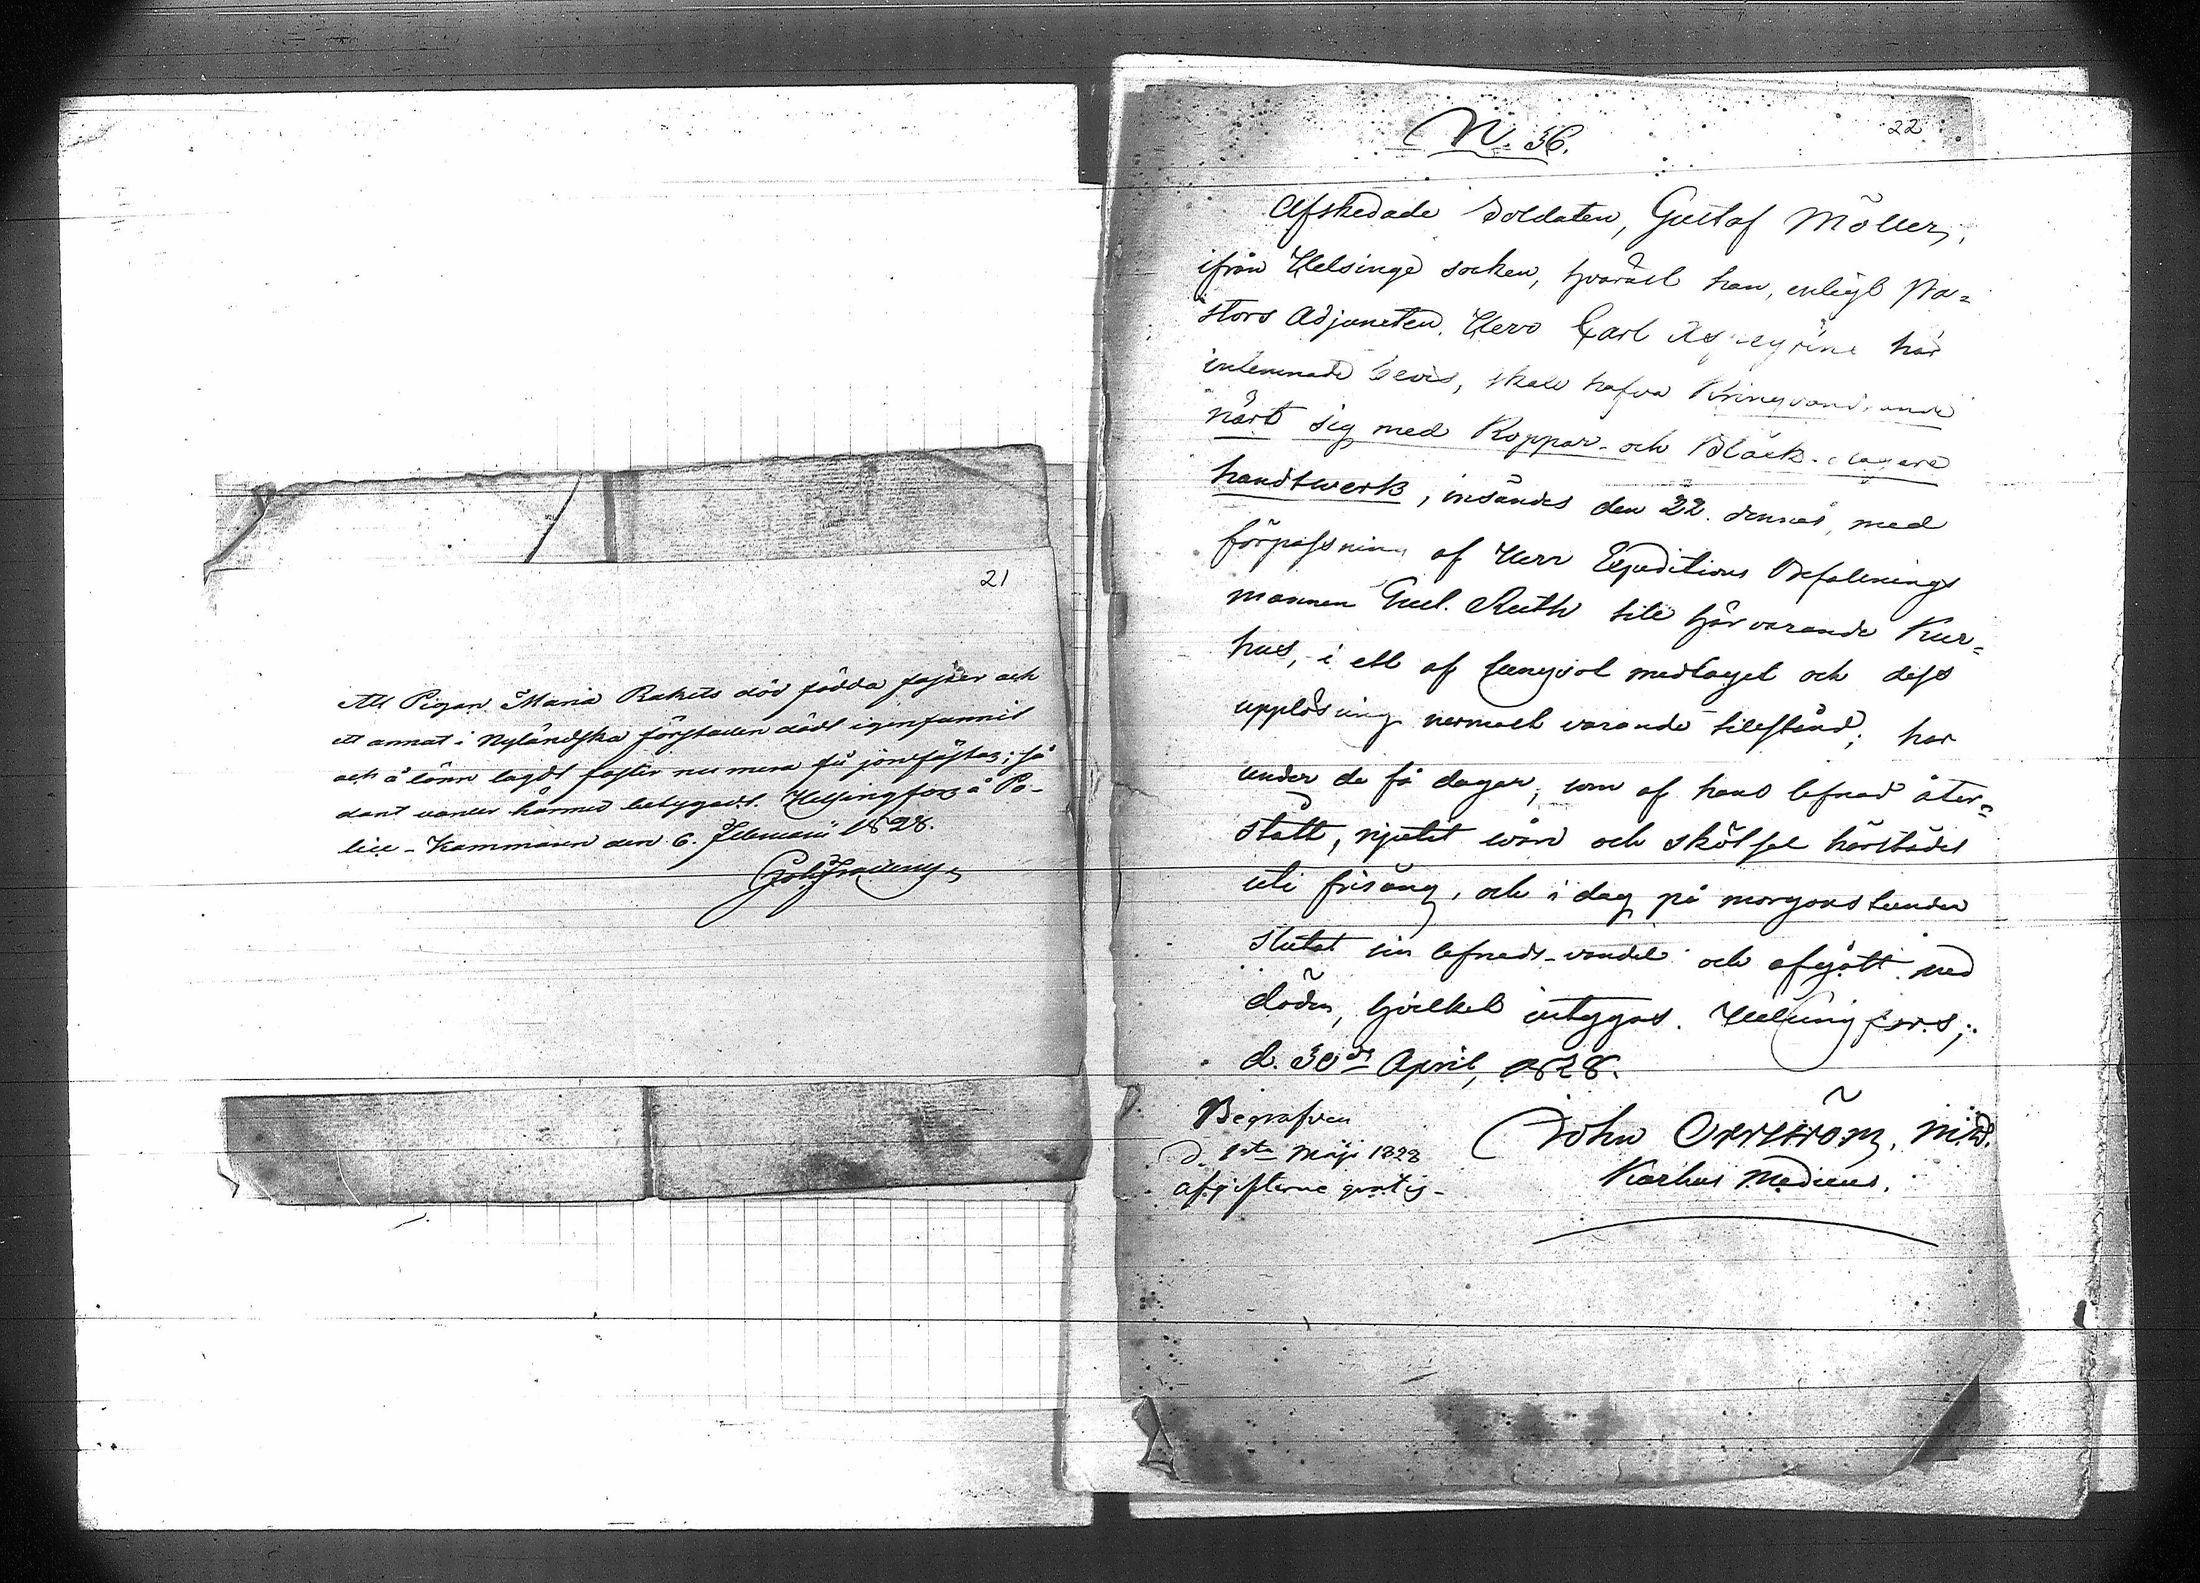 21
Att Pigan Maria Rakets död födda foster och
ett annat i Nyländska förstaden dödt igenfunnit
och å lönn lagdt foster nu mera få jordfästas; så
dant varder härmed betygadt. Helsingfors å Po-
lice-Kammaren den 6. Februarii 1828.
22
N. 36.
Afskedade Soldaten, Gustaf Möller,
ifrån Helsinge socken, hvaräst han, enligt Pa=
stors Adjuncten, Herr Carl här
inlemnade bevis, skall hafva Kringvandrande
närt sig med Koppar- och Bläck-slagare
handtwerk, insändes den 22. dennes, med
förpassning af Herr Expeditions Befallnings
mannen Gust. Ruth till härvarande Kur=
hus, i ett af lungsot medtaget och dess
upplösning nermast varande tillstånd; har
under de få dagar, som af hans lefnad åter=
stått, njutit wård och skötsel härstädes
uti frisäng, och i dag på morgonstunden
slutat sin lefnads-vandel och afgått med
döden, hvilket intygas. Helsingfors,
d. 30de April, 1828.
John Orrström, M.D.
Kurhus Medicus.
Begrafven
d. 1sta Maji 1828
afgifterne gratis-